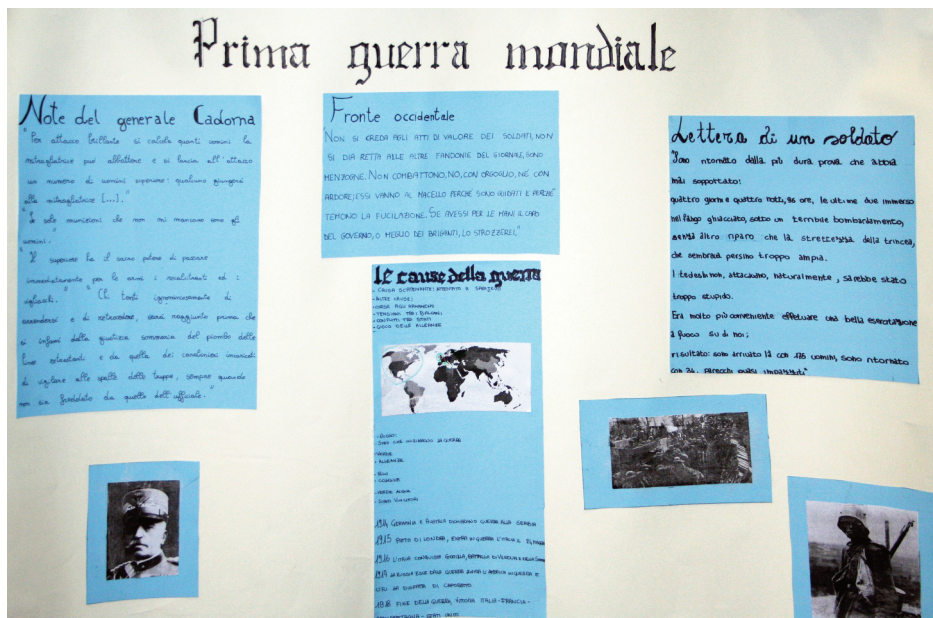 Prima guerra mondiale
Note del generale Cadorna
"Per attacco brillante si calcola quanti uomini la
mitragliatrice può abbattere e si lancia all'attacco
un numero di uomini superiore: qualcuno giungerà
alla mitragliatrice [...]."
"Le sole munizioni che non mi mancano sono gli
uomini."
"Il superiore ha il sacro potere di passare
immediatamente per le armi i recalcitranti ed i
vigliacchi." "Chi tenti ignominiosamente di
arrendersi e di retrocedere, sarà raggiunto prima che
si infami dalla giustizia sommaria del piombo delle
linee retrostanti e da quella dei carabinieri incaricati
di vigilare alle spalle delle truppe, sempre quando
non sia freddato da quello dell'ufficiale."
Fronte occidentale
"NON SI CREDA AGLI ATTI DI VALORE DEI SOLDATI, NON
SI DIA RETTA ALLE ALTRE FANDONIE DEL GIORNALE, SONO
MENZOGNE. NON COMBATTONO, NO, CON ORGOGLIO, NÉ CON
ARDORE; ESSI VANNO AL MACELLO PERCHÉ SONO GUIDATI E PERCHÉ
TEMONO LA FUCILAZIONE. SE AVESSI PER LE MANI IL CAPO
DEL GOVERNO, O MEGLIO DEI BRIGANTI, LO STROZZEREI."
le cause della guerra
- CAUSA SCATENANTE: ATTENTATO A SARAJEVO
- ALTRE CAUSE:
- CORSA AGLI ARMAMENTI
- TENSIONI TRA I BALCANI;
- CONFLITTI TRA STATI
- GIOCO DELLE ALLEANZE
- ROSSO:
VERDE
- ALLEANZE
- BLU
- COLONIE
- VERDE ACQUA
1914 GERMANIA E AUSTRIA DICHIARANO GUERRA ALLA SERBIA
1915 PATTO DI LONDRA, ENTRA IN GUERRA L'ITALIA IL 24 MAGGIO
1916 L'ITALIA CONQUISTA GORIZIA, BATTAGLIA DI VERDUN E DELLA SOMME
1917 LA RUSSIA ESCE DALLA GUERRA, ENTRA L'AMERICA IN GUERRA E
C'È LA DISFATTA DI CAPORETTO
1918 FINE DELLA GUERRA, VITTORIA ITALIA-FRANCIA-
GRAN BRETAGNA - STATI UNITI
Lettera di un soldato
"Sono ritornato dalla più dura prova che abbia
mai sopportato:
quattro giorni e quattro notti, 96 ore, le ultime due immerso
nel fango ghiacciato, sotto un terribile bombardamento,
senza altro riparo che la strettezza della trincea,
che sembrava persino troppo ampia.
I tedeschi non, attaccavano, naturalmente, sarebbe stato
troppo stupido.
Era molto più conveniente effettuare una bella esercitazione
a fuoco su di noi;
risultato: sono arrivato là con 175 uomini, sono ritornato
con 34, parecchi quasi impazziti"